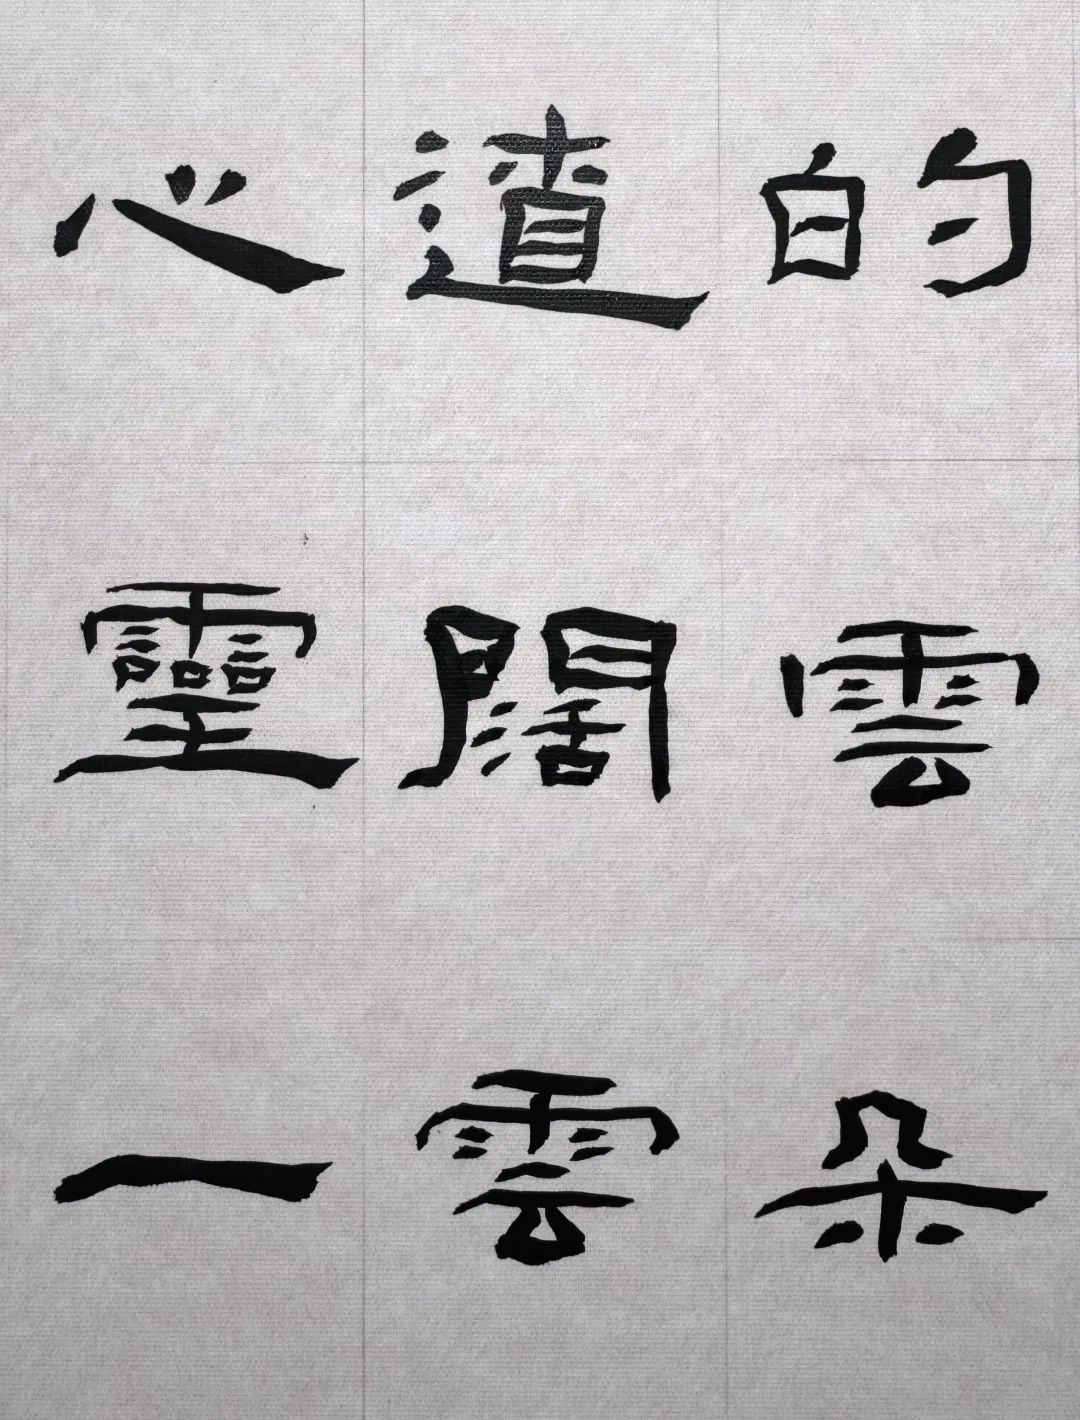 的雲朵
遼闊雲
心靈一